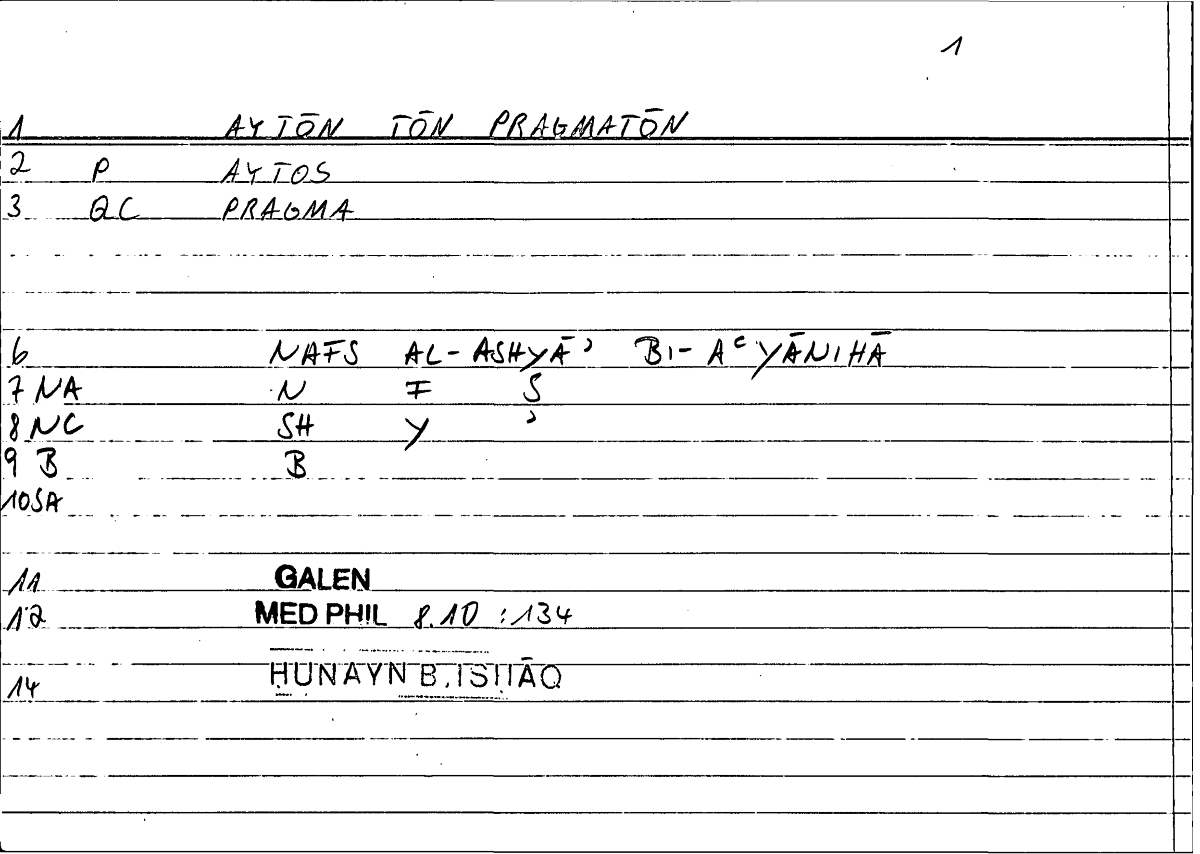 1
1 AYTŌN TŌN PRAGMATŌN
2 P AYTOS
3 QC PRAGMA
6 NAFS AL-ASHYĀʾ BI-AʿYĀNIHĀ
7 NA N F S
8 NC SH Y ʾ
9 B B
10 SA
11 GALEN
12 MED PHIL 8.10 :134
14 ḤUNAYN B. ISḤĀQ